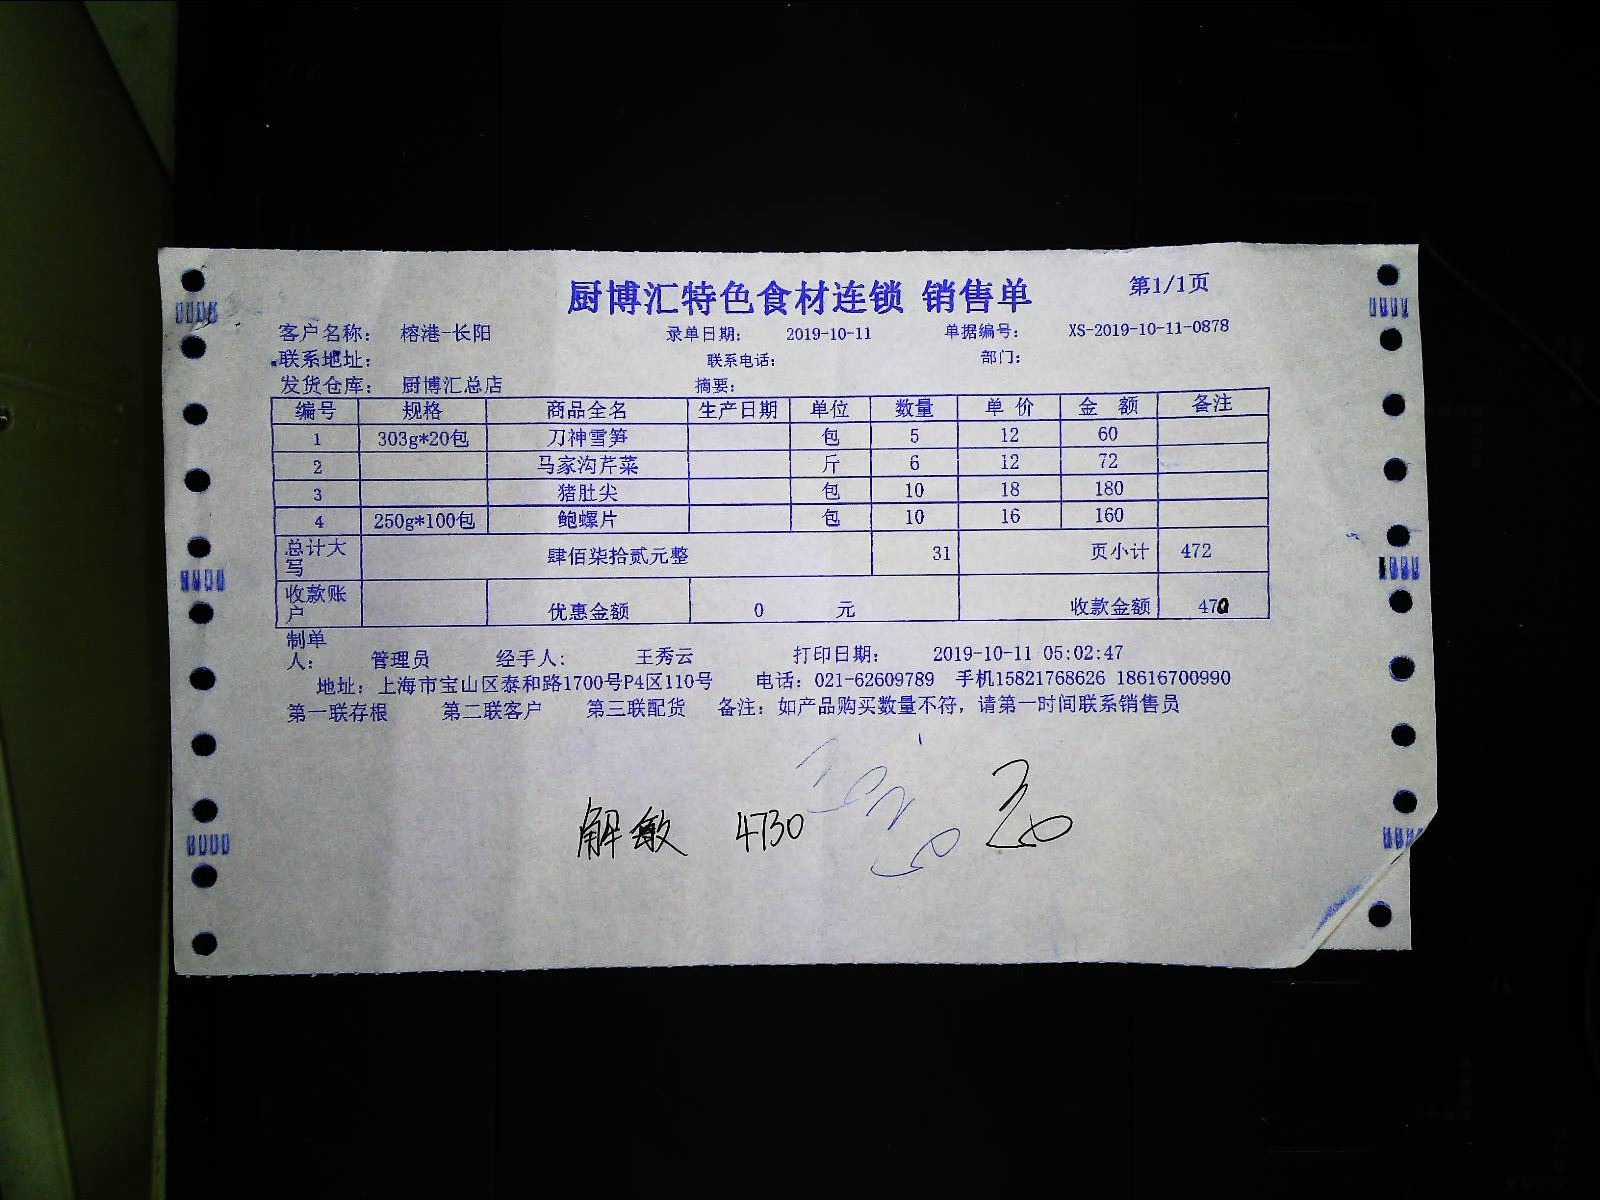 厨博汇特色食材连锁 销售单 第1/1页
客户名称： 榕港-长阳 录单日期： 2019-10-11 单据编号： XS-2019-10-11-0878
联系地址： 联系电话： 部门：
发货仓库： 厨博汇总店 摘要：
编号 规格 商品全名 生产日期 单位 数量 单 价 金 额 备注
1 303g*20包 刀神雪笋 包 5 12 60
2 马家沟芹菜 斤 6 12 72
3 猪肚尖 包 10 18 180
4 250g*100包 鲍螺片 包 10 16 160
总计大写 肆佰柒拾贰元整 31 页小计 472
收款账户 优惠金额 0 元 收款金额 470
制单人： 管理员 经手人： 王秀云 打印日期： 2019-10-11 05:02:47
地址：上海市宝山区泰和路1700号P4区110号 电话：021-62609789 手机15821768626 18616700990
第一联存根 第二联客户 第三联配货 备注：如产品购买数量不符，请第一时间联系销售员
解敏 4730